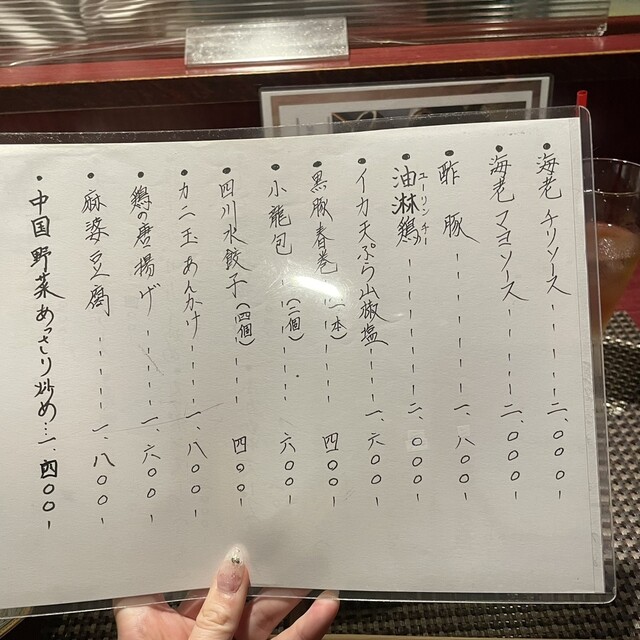 ・海老チリソース-----二、〇〇〇-
・海老マヨソース-----二、〇〇〇-
・酢豚-------一、八〇〇-
・油淋鶏ユーリンチー------二、〇〇〇-
・イカ天ぷら山椒塩---一、六〇〇-
・黒豚春巻(一本)----四〇〇-
・小籠包(二個)----六〇〇-
・四川水餃子(四個)---四〇〇-
・カニ玉あんかけ----一、八〇〇-
・鶏の唐揚げ-----一、六〇〇-
・麻婆豆腐------一、八〇〇-
・中国野菜あっさり炒め…一、四〇〇-